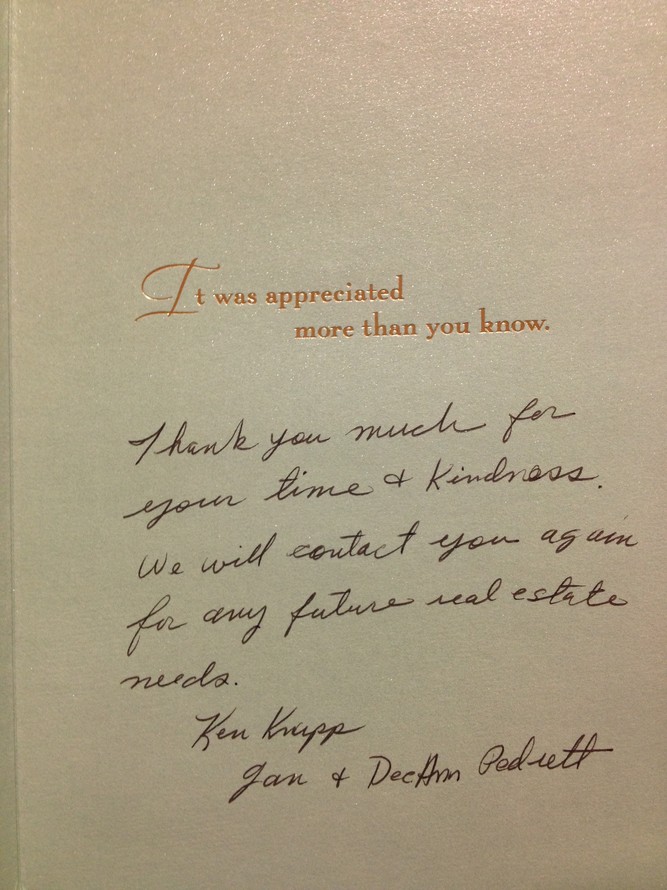 It was appreciated
more than you know.
Thank you much for
your time & Kindness.
We will contact you again
for any future real estate
needs.
Ken Knupp
Jan & DeeAnn Pedrett